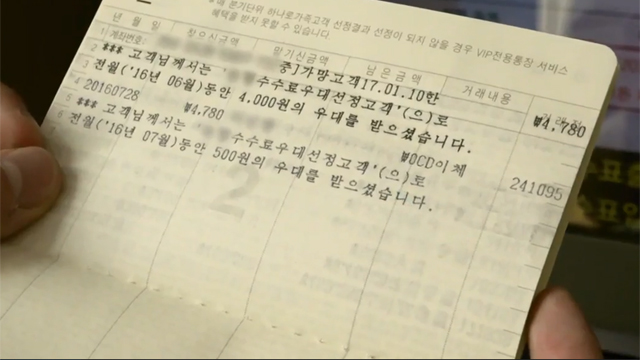 분기단위 하나로가족고객 선정결과 선정이 되지 않을 경우 VIP전용통장 서비스
혜택을 받지 못할 수 있습니다.
년 월 일 찾으신금액 맡기신금액 남은금액 거래내용
1 계좌번호: 중]가망고객17.01.10한 ₩4,780
2 ### 고객님께서는 수수료우대선정고객'(으)로
3 전월('16년 06월)동안 4,000원의 우대를 받으셨습니다.
4 20160728 ₩4,780 ₩0CD이체 241095
5 ### 고객님께서는 수수료우대선정고객'(으)로
6 전월('16년 07월)동안 500원의 우대를 받으셨습니다.
7
2